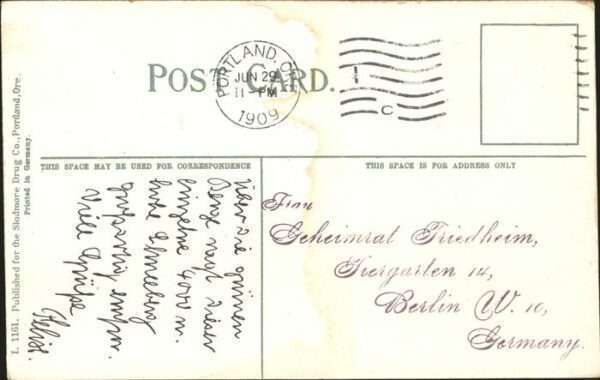 POST CARD.
PORTLAND, ORE
JUN 29
11 PM
1909
1
C
I. 1161. Published for the Skidmore Drug Co., Portland, Ore.
Printed in Germany.
THIS SPACE MAY BE USED FOR CORRESPONDENCE
Über die grünen
Berge ragt dieser
einzelne 4000 m.
hohe Schneeberg
großartig empor.
Viele Grüße
THIS SPACE IS FOR ADDRESS ONLY
Frau
Geheimrat Friedheim,
Tiergarten 14,
Berlin W. 10,
Germany.